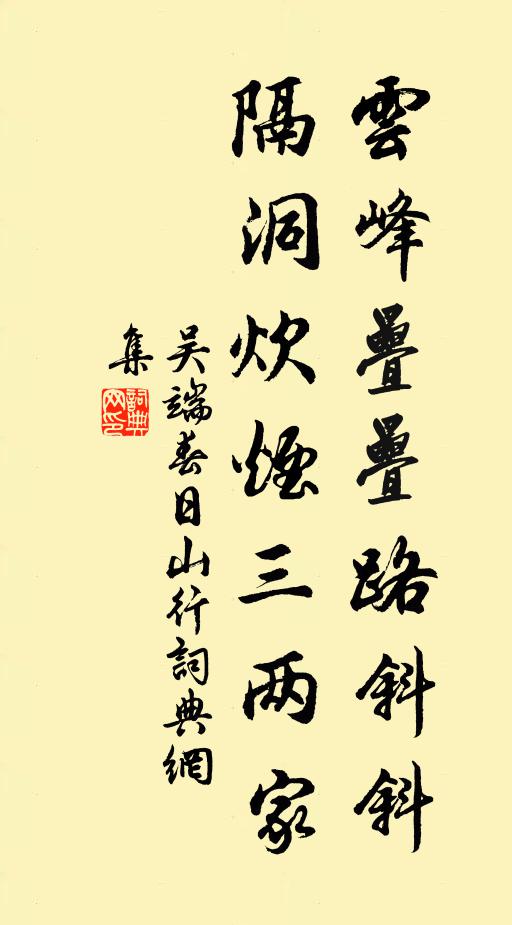 雲峰疊疊路斜斜
隔洞炊煙三两家
吴端春日山行詞典網
集
詞典
网印